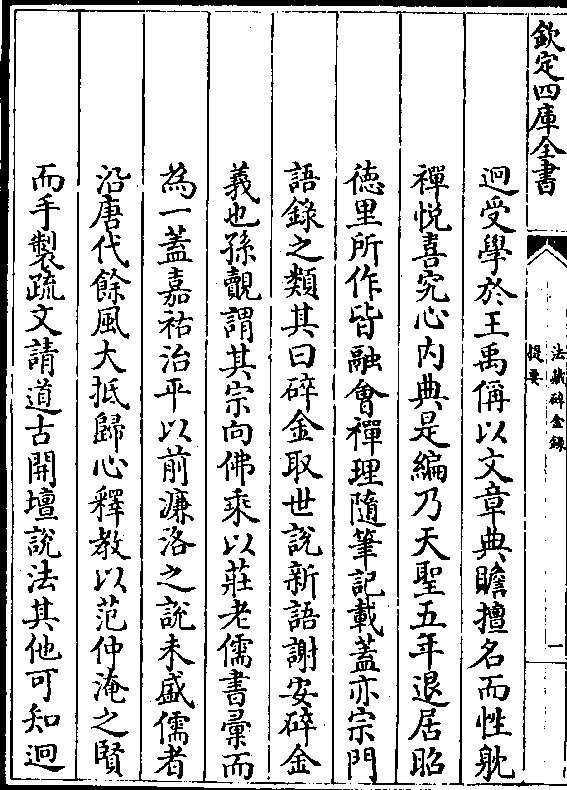 欽定四庫全書
法藏碎金錄
提要
一
迥受學於王禹偁以文章典贍擅名而性躭
禪悅喜究心内典是編乃天聖五年退居昭
徳里所作皆融會禪理隨筆記載蓋亦宗門
語錄之類其曰碎金取世說新語謝安碎金
義也孫覿謂其宗向佛乘以莊老儒書彚而
為一蓋嘉祐治平以前濂洛之說未盛儒者
沿唐代餘風大抵歸心釋教以范仲淹之賢
而手製疏文請道古開壇說法其他可知迥